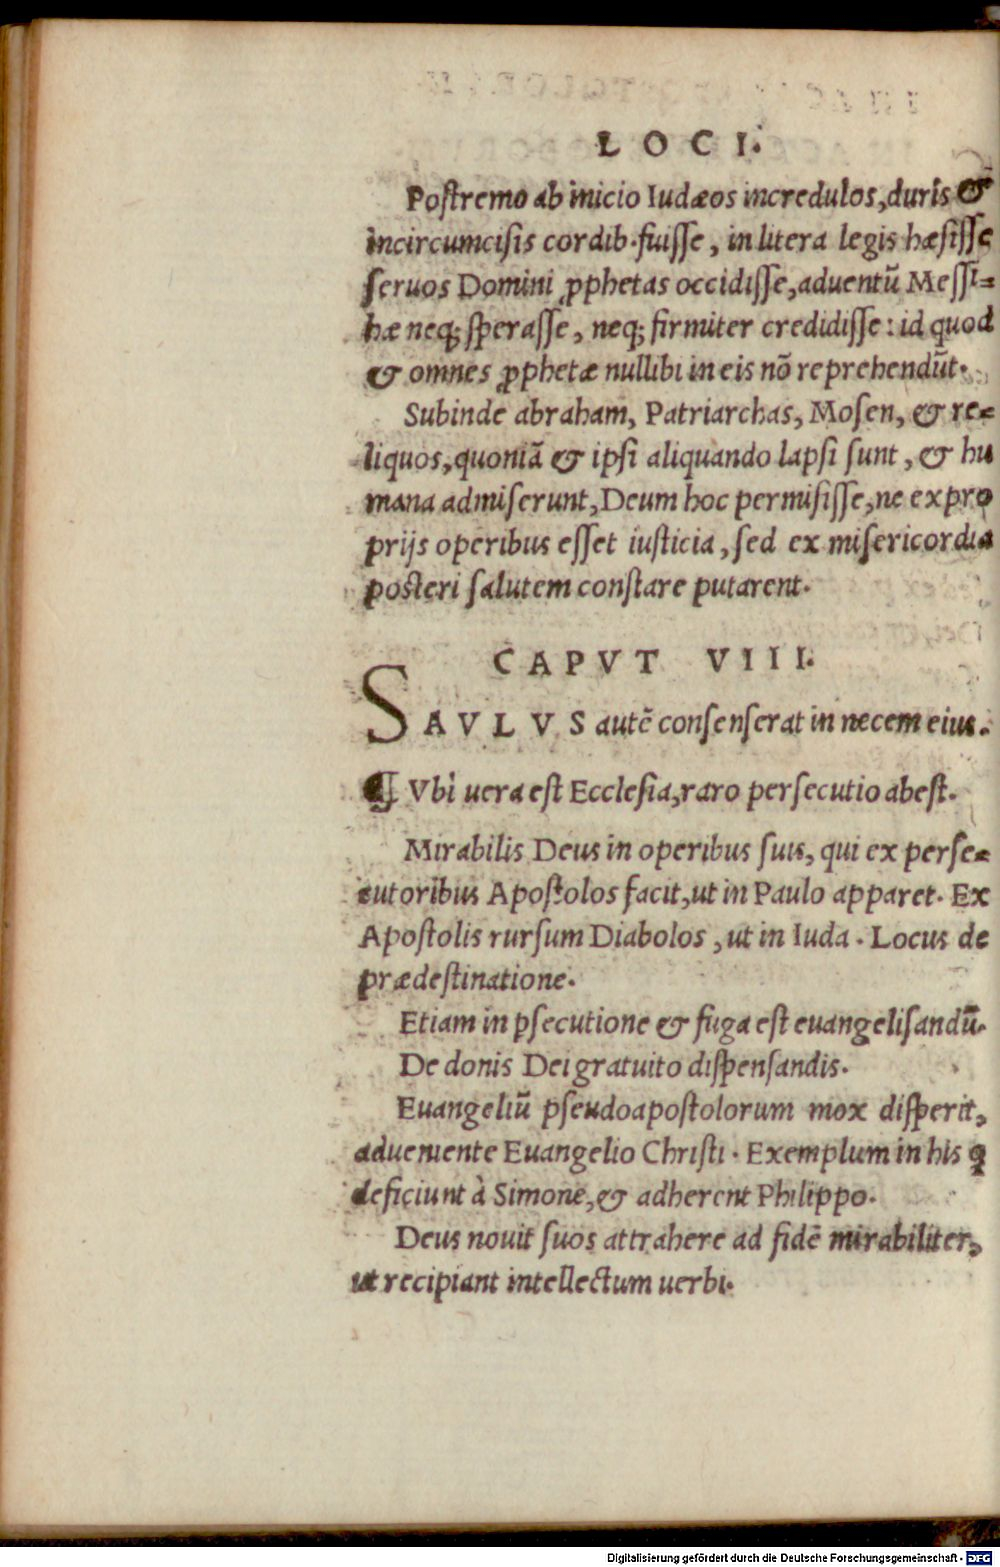 LOCI.
Postremo ab inicio Iudæos incredulos, duris &
incircumcisis cordib. fuisse, in litera legis hæsisse
seruos Domini ꝓphetas occidisse, aduentũ Messi=
hæ neq; sperasse, neq; firmiter credidisse: id quod
& omnes ꝓphetæ nullibi in eis nõ reprehendũt.
Subinde abraham, Patriarchas, Mosen, & re=
liquos, quoniã & ipsi aliquando lapsi sunt, & hu
mana admiserunt, Deum hoc permisisse, ne ex pro
prijs operibus esset iusticia, sed ex misericordia
posteri salutem constare putarent.
CAPVT VIII.
SAVLVS autẽ consenserat in necem eius.
¶ Vbi uera est Ecclesia, raro persecutio abest.
Mirabilis Deus in operibus suis, qui ex perse=
cutoribus Apostolos facit, ut in Paulo apparet. Ex
Apostolis rursum Diabolos, ut in Iuda. Locus de
prædestinatione.
Etiam in ꝑsecutione & fuga est euangelisandũ.
De donis Dei gratuito dispensandis.
Euangeliũ pseudoapostolorum mox disperit,
adueniente Euangelio Christi. Exemplum in his q̃
deficiunt à Simone, & adherent Philippo.
Deus nouit suos attrahere ad fidẽ mirabiliter,
ut recipiant intellectum uerbi.
Digitalisierung gefördert durch die Deutsche Forschungsgemeinschaft - DFG